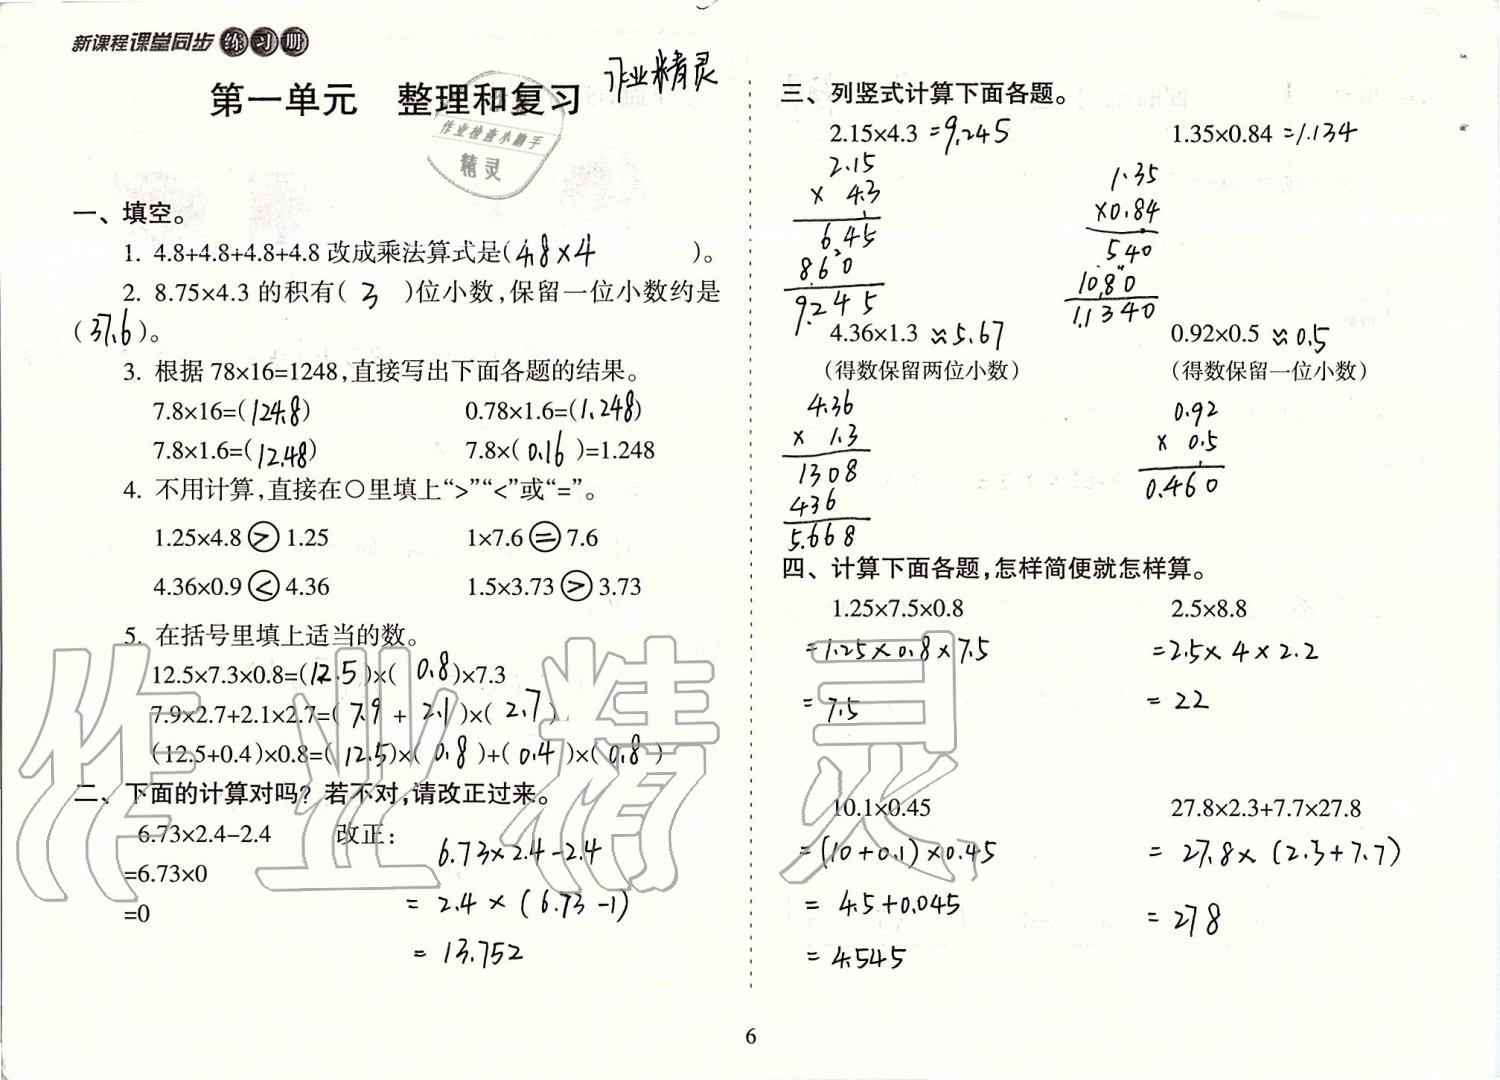 新课程课堂同步练习册
第一单元 整理和复习
作业精灵
作业检查小助手
精灵
一、填空。
1. 4.8+4.8+4.8+4.8改成乘法算式是(4.8×4)。
2. 8.75×4.3的积有(3)位小数,保留一位小数约是
(37.6)。
3. 根据78×16=1248,直接写出下面各题的结果。
7.8×16=(124.8) 0.78×1.6=(1.248)
7.8×1.6=(12.48) 7.8×(0.16)=1.248
4. 不用计算,直接在○里填上“>”“<”或“=”。
1.25×4.8 > 1.25 1×7.6 = 7.6
4.36×0.9 < 4.36 1.5×3.73 > 3.73
5. 在括号里填上适当的数。
12.5×7.3×0.8=(12.5)×(0.8)×7.3
7.9×2.7+2.1×2.7=(7.9+2.1)×(2.7)
(12.5+0.4)×0.8=(12.5)×(0.8)+(0.4)×(0.8)
二、下面的计算对吗?若不对,请改正过来。
6.73×2.4-2.4 改正: 6.73×2.4-2.4
=6.73×0 =2.4×(6.73-1)
=0 =13.752
三、列竖式计算下面各题。
2.15×4.3=9.245 1.35×0.84=1.134
2.15 1.35
×4.3 ×0.84
645 540
860 1080
9.245 1.1340
4.36×1.3≈5.67 0.92×0.5≈0.5
(得数保留两位小数) (得数保留一位小数)
4.36 0.92
×1.3 ×0.5
1308 0.460
436
5.668
四、计算下面各题,怎样简便就怎样算。
1.25×7.5×0.8 2.5×8.8
=1.25×0.8×7.5 =2.5×4×2.2
=7.5 =22
10.1×0.45 27.8×2.3+7.7×27.8
=(10+0.1)×0.45 =27.8×(2.3+7.7)
=4.5+0.045 =278
=4.545
作业精灵
6